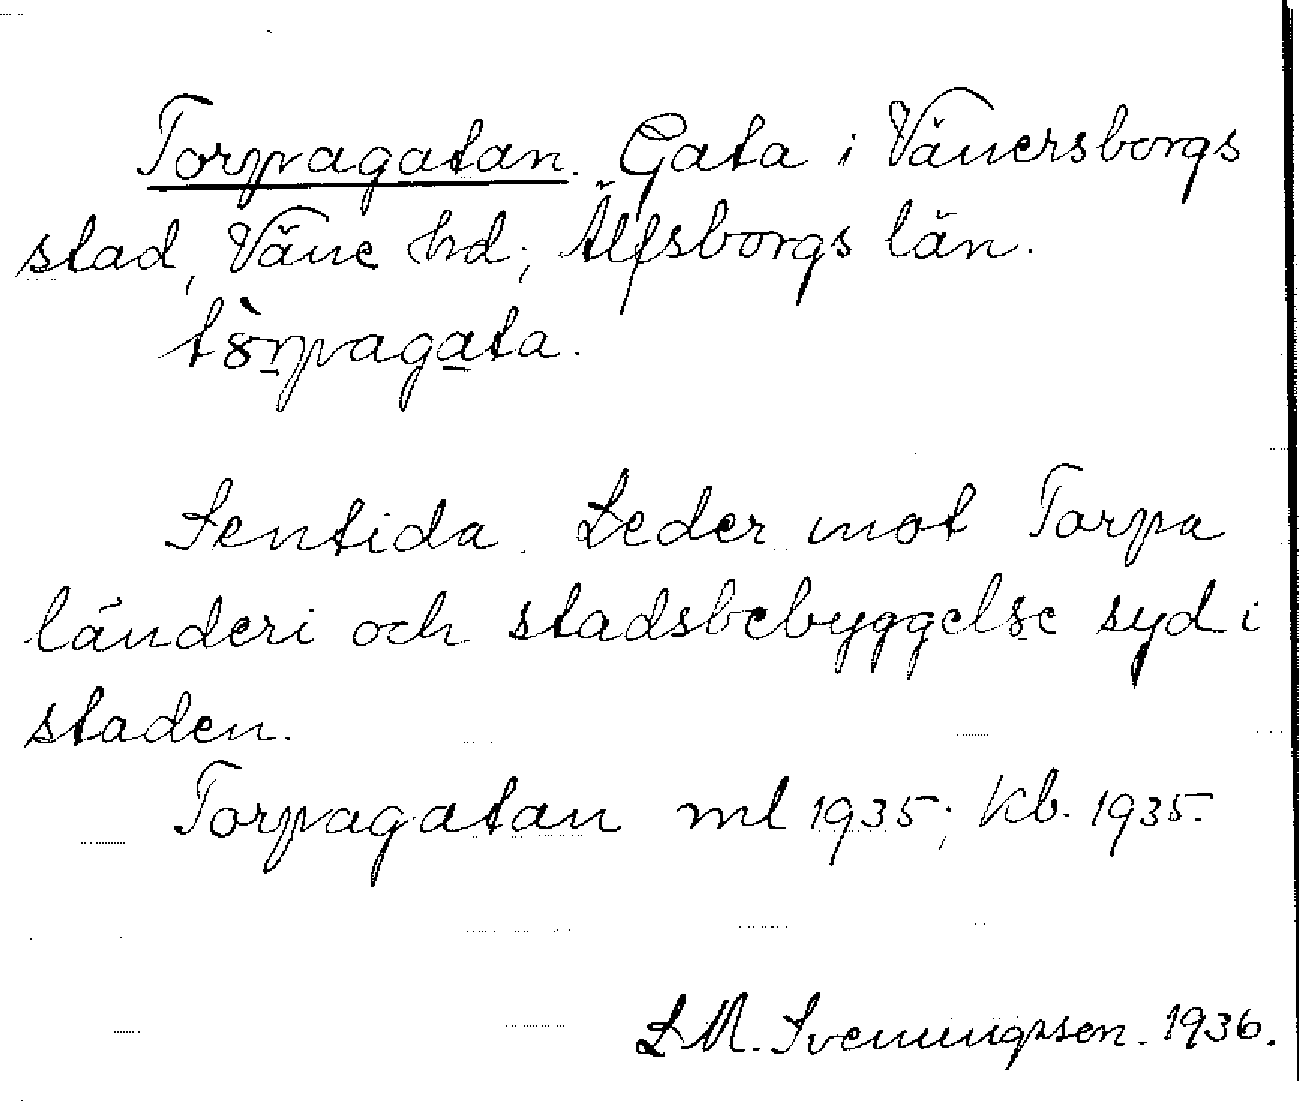 Torpagatan. Gata i Vänersborgs
stad, Väne hd; Älfsborgs län.
tòrpagata.
Sentida. Leder mot Torpa
länderi och stadsbebyggelse syd i
staden.
Torpagatan ml 1935; Kb. 1935.
L M. Svenungsson. 1936.